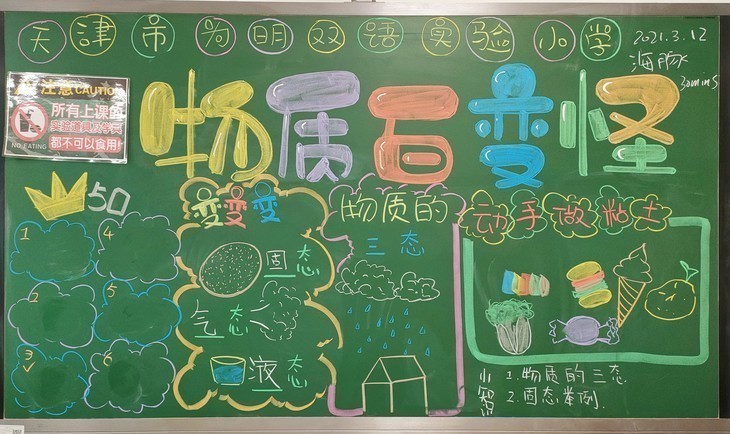 天津市尚明双语实验小学
2021.3.12
海豚
30mins
注意 CAUTION
所有上课的
实验道具及学具
都不可以食用!
NO EATING
物质百变怪
50
1
4
2
5
3
6
变变变
固态
气态
液态
物质的
三态
动手做粘土
小知识
1.物质的三态
2.固态举例.